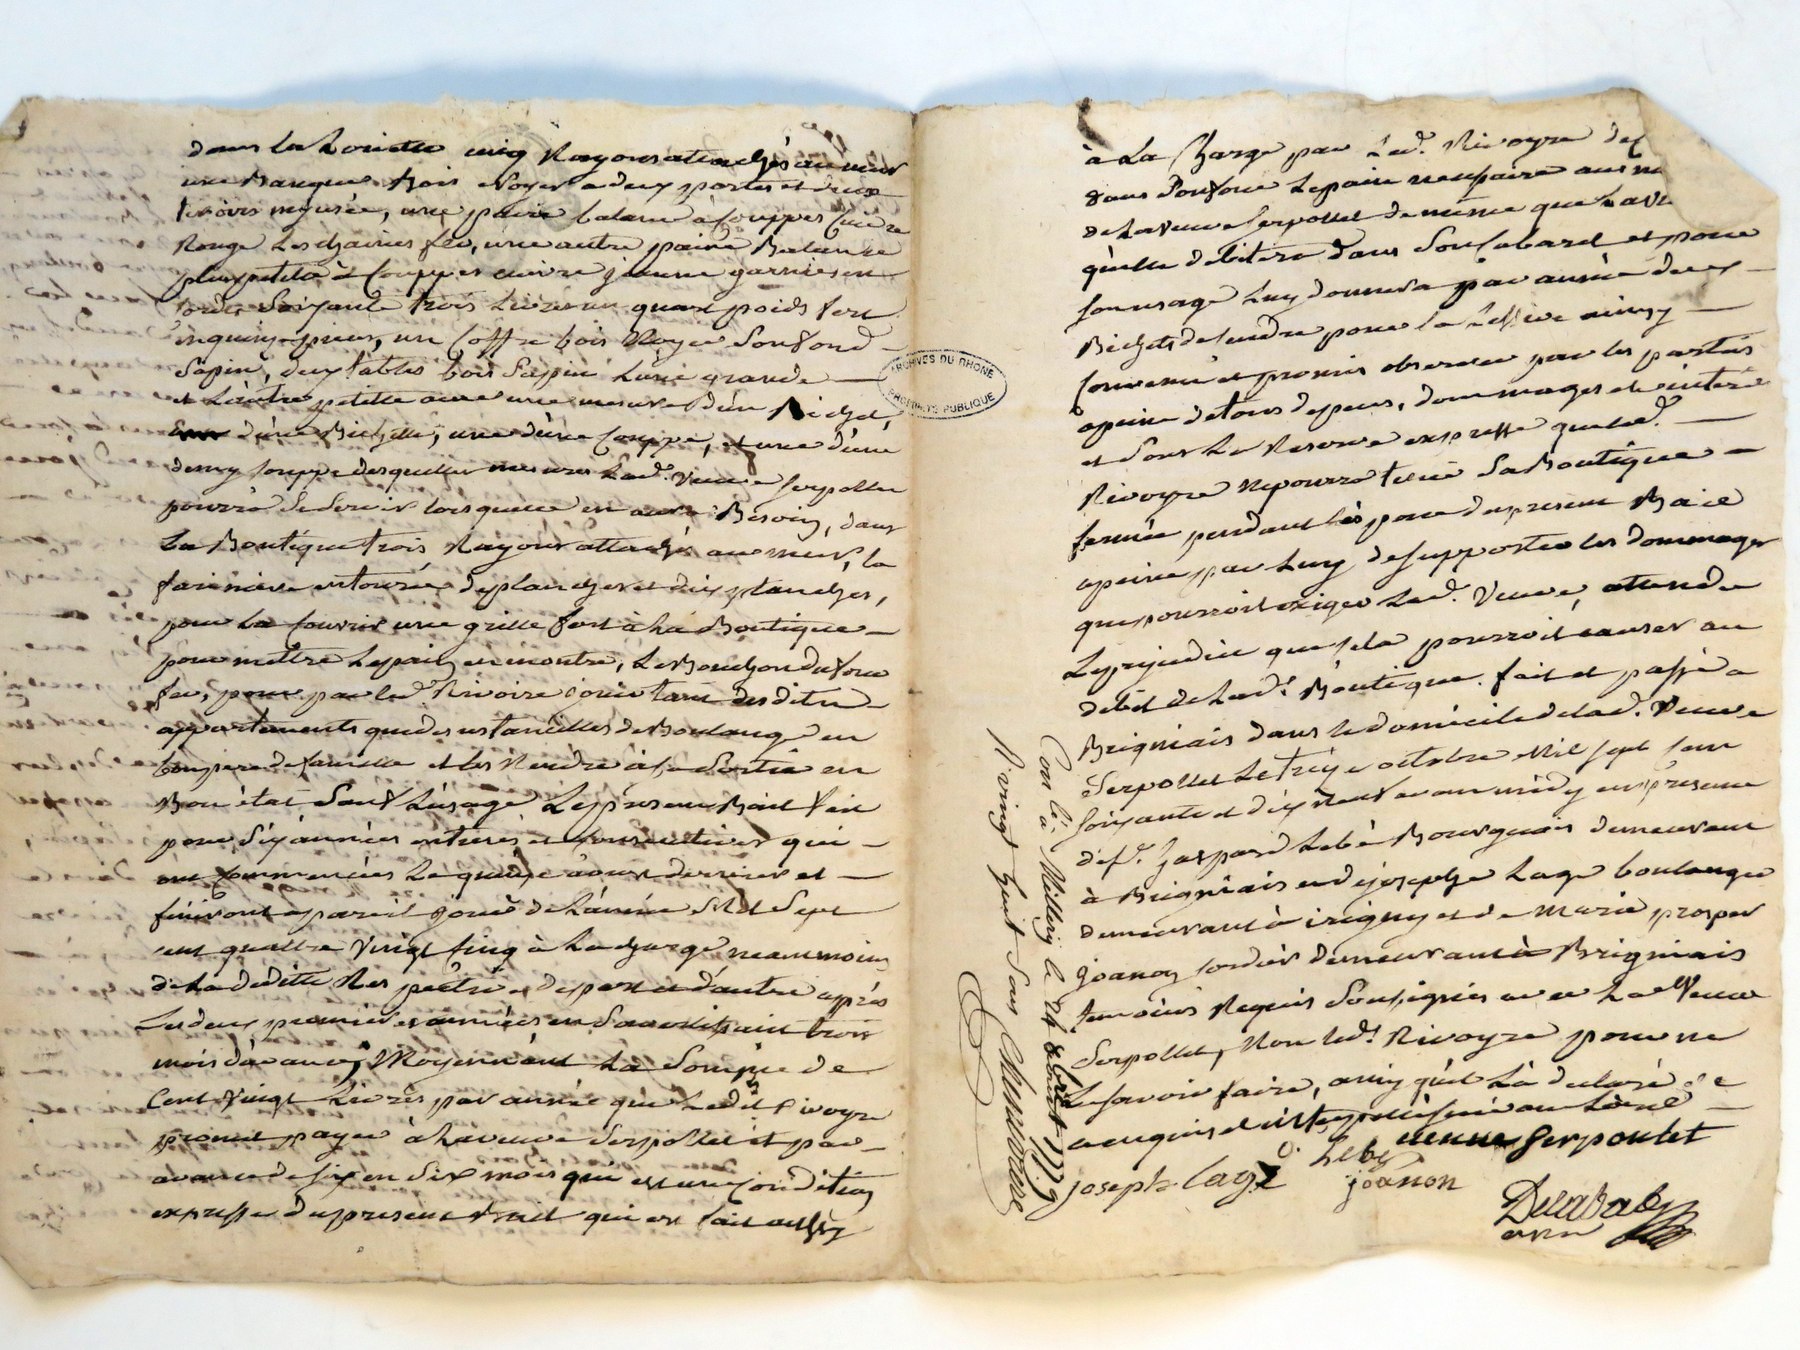 cinq Rayons attachés au mur
une Banque Bois Noyer a deux portes et deux
tiroirs une paire balance à Couppes Cuivre
Rouge Les chaines fer, une autre paire Balance
plus petitte à Couppes cuivre jaune garnies en
Corde Soixante trois Livres un quart poids fert
en quinze pieces, un Coffre bois Noyer Son fond
Sapin, deux tables bois Sapin L'une grande
et L'autre petitte avec une mesure d'un Bichet,
d'une Bichette, une d'une Couppe, et une d'une
demy Couppe desquelles mesures Lad. Veuve Serpollet
pourra Se Servir lorsquelle en aura Besoin, dans
La Boutique trois Rayons attachés au mur, la
fariniere entourée de planches et dix planches,
pour La Couvrir une grille fert à La Boutique
pour mettre Lepain en montre, Le Bouchon du four
fer, pour par led. Rivoire jouir tant desdits
appartements que des ustancilles de Boulange en
bon pere de famille et les Rendre à sa Sortie en
Bon état Sauf L'usage Le present Bail fait
pour Six années entieres et Consecutives qui
ont Commencées Le quinze aoust dernier et
finiront a pareil jour de L'année Mil Sept
cent quattre Vingt Cinq à La charge neanmoins
de La deditte Respective de part et d'autre apprès
Les deux premieres années en S'avertissant trois
mois d'avance, Moyennant La Somme de
Cent Vingt Livres par année que Ledit Rivoyre
promet payer à La veuve Serpollet et par
avance de Six en Six mois qui est une Condition
expresse du present Bail qui est fait aussy
à La Charge par Led. Rivoyre de
dans Son four Le pain necessaire au
de La veuve Serpollet de meme que
qu'elle debitera dans Son Cabaret et pour
Son usage Luy donnera par année deux
Bichets de Cendre pour la Lessive ainsy
Convenu et promis observer par les parties
apeine de tous depens, dommages et interé
et Sous La Reserve expresse que led.
Rivoyre ne pourra tenir Sa Boutique
fermée pendant L'espace du present Bail
apeine par Luy de Supporter les dommages
que pourroit exiger Lad. Veuve, attendu
Leprejudice que Cela pourroit causer au
debit de Lad. Boutique. fait et passé a
Brigniais dans le domicile de lad. Veuve
Serpollet Le treize octobre Mil Sept Cent
Soixante et dix Neuf avant midy en presence
de Sr. Gaspard Lebé Bourgeois demeurant
à Brigniais et de joseph Lage boulanger
demeurant à irigny et de Marie prosper
Joanon Cordier demeurant à Brigniais
temoins Requis Soussignés avec La Veuve
Serpollet, Non led. Rivoyre pour ne
Le Savoir faire, ainsy qu'il L'a declaré de
ce enquis et
veuve Serpoulet
G. Lebé
joseph lage
joanon
Delabaly
Con lé à Millery le 24 8bre 1779
R vingt huit Sols